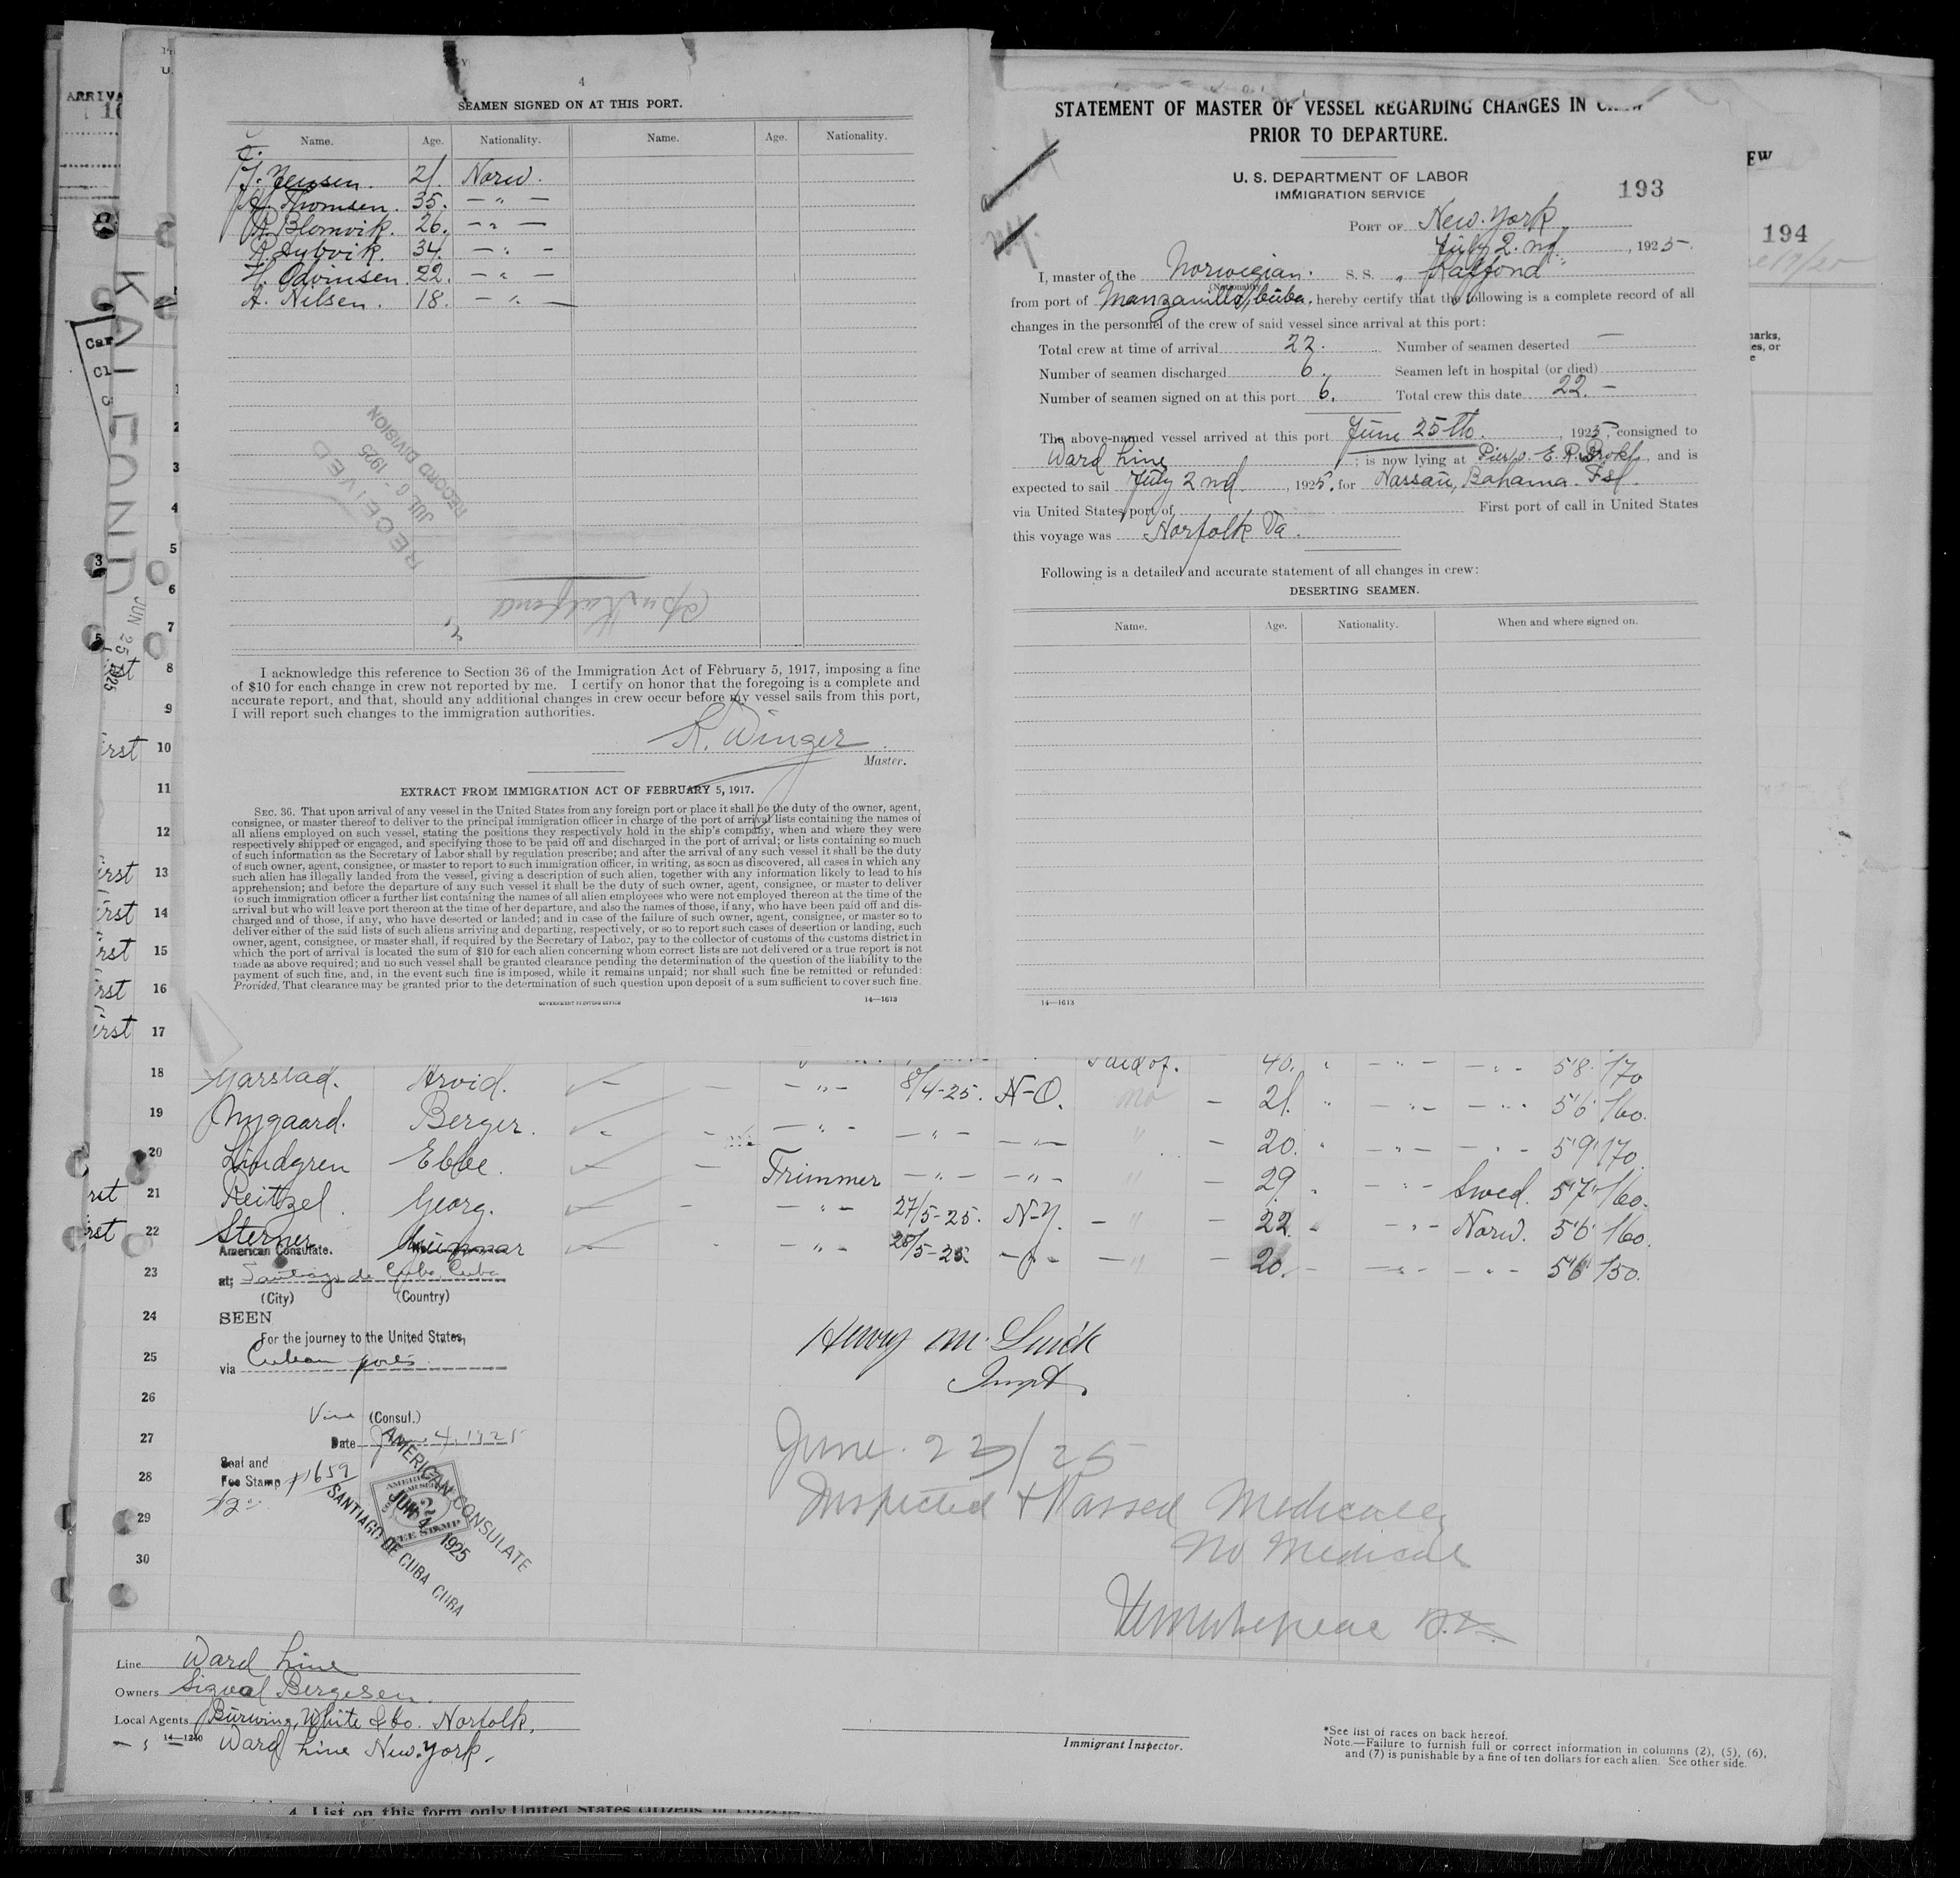 4
SEAMEN SIGNED ON AT THIS PORT.
Name. Age. Nationality. Name. Age. Nationality.
J. Jensen. 21. Norw.
Thomsen. 35. — " —
R. Blomvik. 26. — " —
R. Dybvik. 34. — " —
H. Odvinsen. 22. — " —
A. Nilsen. 18. — " —
RECEIVED
JUL 6 - 1925
RECORD DIVISION
I acknowledge this reference to Section 36 of the Immigration Act of February 5, 1917, imposing a fine
of $10 for each change in crew not reported by me. I certify on honor that the foregoing is a complete and
accurate report, and that, should any additional changes in crew occur before my vessel sails from this port,
I will report such changes to the immigration authorities.
K. Winger
Master.
EXTRACT FROM IMMIGRATION ACT OF FEBRUARY 5, 1917.
SEC. 36. That upon arrival of any vessel in the United States from any foreign port or place it shall be the duty of the owner, agent,
consignee, or master thereof to deliver to the principal immigration officer in charge of the port of arrival lists containing the names of
all aliens employed on such vessel, stating the positions they respectively hold in the ship's company, when and where they were
respectively shipped or engaged, and specifying those to be paid off and discharged in the port of arrival; or lists containing so much
of such information as the Secretary of Labor shall by regulation prescribe; and after the arrival of any such vessel it shall be the duty
of such owner, agent, consignee, or master to report to such immigration officer, in writing, as soon as discovered, all cases in which any
such alien has illegally landed from the vessel, giving a description of such alien, together with any information likely to lead to his
apprehension; and before the departure of any such vessel it shall be the duty of such owner, agent, consignee, or master to deliver
to such immigration officer a further list containing the names of all alien employees who were not employed thereon at the time of the
arrival but who will leave port thereon at the time of her departure, and also the names of those, if any, who have been paid off and dis-
charged and of those, if any, who have deserted or landed; and in case of the failure of such owner, agent, consignee, or master so to
deliver either of the said lists of such aliens arriving and departing, respectively, or so to report such cases of desertion or landing, such
owner, agent, consignee, or master shall, if required by the Secretary of Labor, pay to the collector of customs of the customs district in
which the port of arrival is located the sum of $10 for each alien concerning whom correct lists are not delivered or a true report is not
made as above required; and no such vessel shall be granted clearance pending the determination of the question of the liability to the
payment of such fine, and, in the event such fine is imposed, while it remains unpaid; nor shall such fine be remitted or refunded:
Provided, That clearance may be granted prior to the determination of such question upon deposit of a sum sufficient to cover such fine.
GOVERNMENT PRINTING OFFICE 14—1613
STATEMENT OF MASTER OF VESSEL REGARDING CHANGES IN
PRIOR TO DEPARTURE.
U. S. DEPARTMENT OF LABOR
IMMIGRATION SERVICE
193
PORT OF New York
July 2.nd, 1925.
I, master of the Norwegian. S. S. "Kalfond"
(Nationality)
from port of Manzanillo, Cuba, hereby certify that the following is a complete record of all
changes in the personnel of the crew of said vessel since arrival at this port:
Total crew at time of arrival 22. Number of seamen deserted —
Number of seamen discharged 6. Seamen left in hospital (or died)
Number of seamen signed on at this port 6. Total crew this date 22. —
The above-named vessel arrived at this port June 25th., 1925, consigned to
Ward Line; is now lying at Pier E. R. Brokl, and is
expected to sail July 2nd, 1925, for Nassau, Bahama. Isl.
via United States port of First port of call in United States
this voyage was Norfolk Va.
Following is a detailed and accurate statement of all changes in crew:
DESERTING SEAMEN.
Name. Age. Nationality. When and where signed on.
14—1613
EW
194
arks,
es, or
e
ARRIVA
KALFOND
JUN 25 1925
Car
Cl
1
2
3
4
5
6
7
8
9
10
11
12
13
14
15
16
17
Paid of. 40. 5'8 170
18 Marstad. Arvid. — " — 8/4-25. N-O. no — 21. 5'6 160.
19 Nygaard. Berger. — " — — " — — " — " — 20. 5'9 170
20 Lindgren Ebbe. Trimmer — " — — " — " — 29. Swed. 5'7" 160.
21 Reitzel. Georg. — " — 27/5-25. N-Y. — " — 22. Norw. 5'6 160.
22 Sterner Gunnar — " — 28/5-25. — " — — " — 20. 5'6 150.
American Consulate.
23 at; Santiago de Cuba, Cuba
(City) (Country)
24 SEEN
For the journey to the United States,
25 via Cuban ports
26
Vice (Consul.)
27 Date June 4, 1925
Seal and
28 Fee Stamp 1659
$2.00
29
30
AMERICAN CONSULATE
JUN 4 1925
SANTIAGO DE CUBA CUBA
AMERICAN
CONSULAR SERVICE
2
FEE STAMP
Inspt.
June 23/25
Inspected + Passed Medically
No Medical
Line Ward Line
Owners Sigval Bergesen.
Local Agents Burwing, White & Co. Norfolk.
14—1240
— " — Ward Line New York.
Immigrant Inspector.
*See list of races on back hereof.
Note.—Failure to furnish full or correct information in columns (2), (5), (6),
and (7) is punishable by a fine of ten dollars for each alien. See other side.
4. List on this form only United States citizens